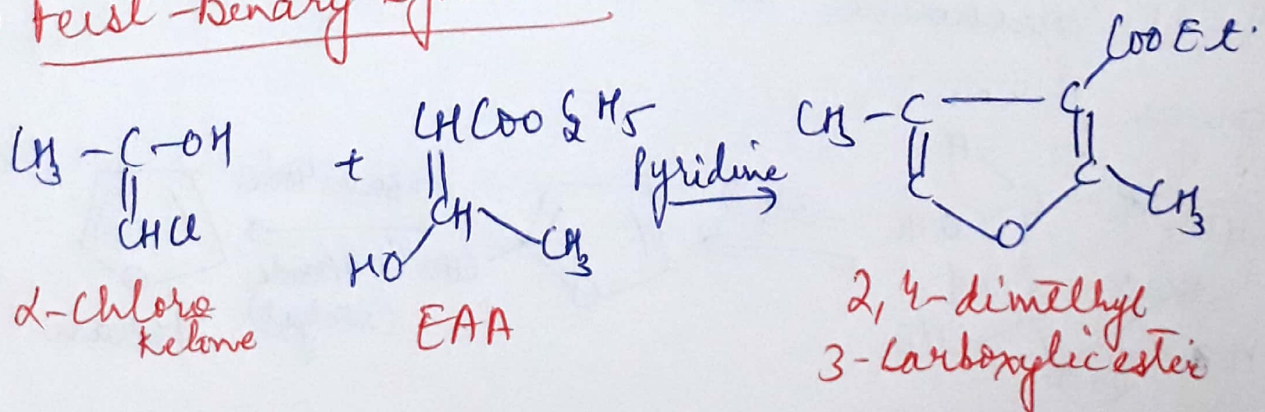 Feist-Benary
CH3-C-OH
CHCl
+
CHCOOC2H5
CH
HO
CH3
Pyridine
COOEt.
CH3-C
C
C
C
CH3
O
α-Chloro
Ketone
EAA
2,4-dimethyl
3-Carboxylicester